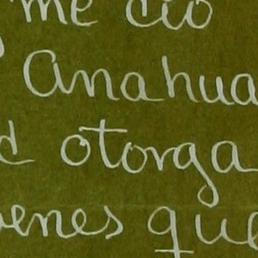 me cio
Anahua
d otorga
venes que